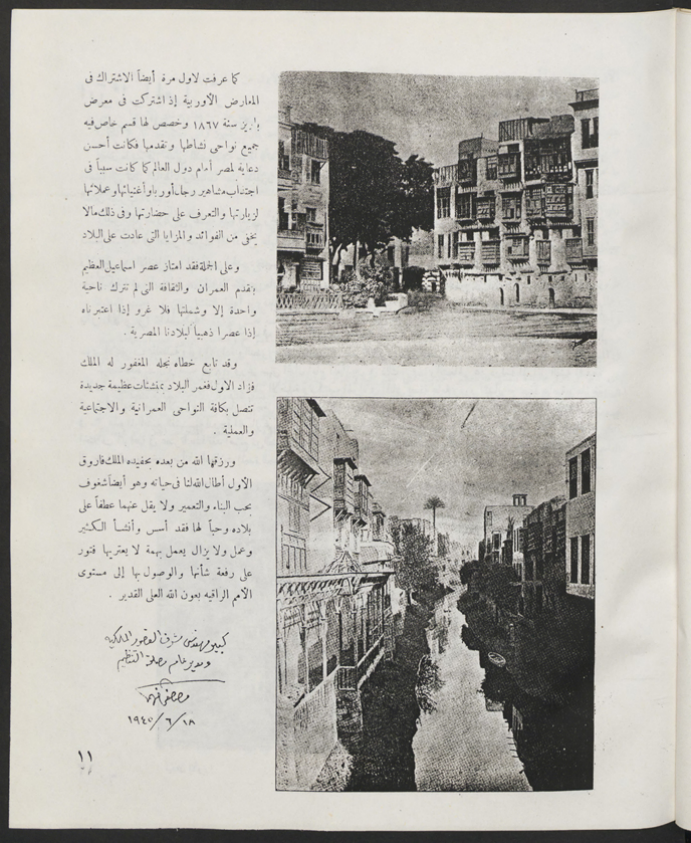 كما عرفت لاول مرة أيضاً الاشتراك فى
المعارض الأوربية إذ اشتركت فى معرض
باريز سنة ١٨٦٧ وخصص لها قسم خاص فيه
جميع نواحى نشاطها وتقدمها فكانت أحسن
دعاية لمصر أمام دول العالم كما كانت سبباً فى
اجتذاب مشاهير رجال أوربا وأغنيائها وعملائها
لزيارتها والتعرف على حضارتها وفى ذلك مالا
يخفى من الفوائد والمزايا التى عادت على البلاد
وعلى الجملة فقد امتاز عصر اسماعيل العظيم
بتقدم العمران والثقافة التى لم تترك ناحية
واحدة إلا وشملتها فلا غرو إذا اعتبرناه
إذا عصرا ذهبياً لبلادنا المصرية .
وقد تابع خطاه نجله المغفور له الملك
فؤاد الاول فغمر البلاد بمنشئات عظيمة جديدة
تتصل بكافة النواحى العمرانية والاجتماعية
والعملية .
ورزقها الله من بعده بحفيده الملك فاروق
الأول أطال الله لنا فى حياته وهو أيضاً شغوف
بحب البناء والتعمير ولا يقل عنهما عطفاً على
بلاده وحباً لها فقد أسس وأنشأ الكثير
وعمل ولا يزال يعمل بهمة لا يعتريها فتور
على رفعة شأنها والوصول بها إلى مستوى
الأمم الراقيه بعون الله العلى القدير .
كبير مهندسى مشرف القصور الملكية
ومدير عام مصلحة التنظيم
مصطفى فهمى
١٩٤٥/٦/١٨
١١